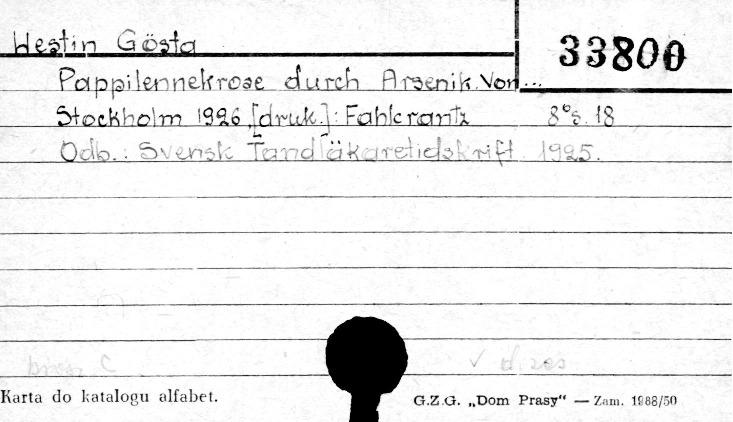 Westin Gösta
33800
Pappilennekrose durch Arsenik. Von...
Stockholm 1926, [druk.]: Fahlcrantz 8°s. 18
Odb.: Svensk Tandläkaretidskrift 1925.
Karta do katalogu alfabet.
G.Z.G. „Dom Prasy“ — Zam. 1988/50